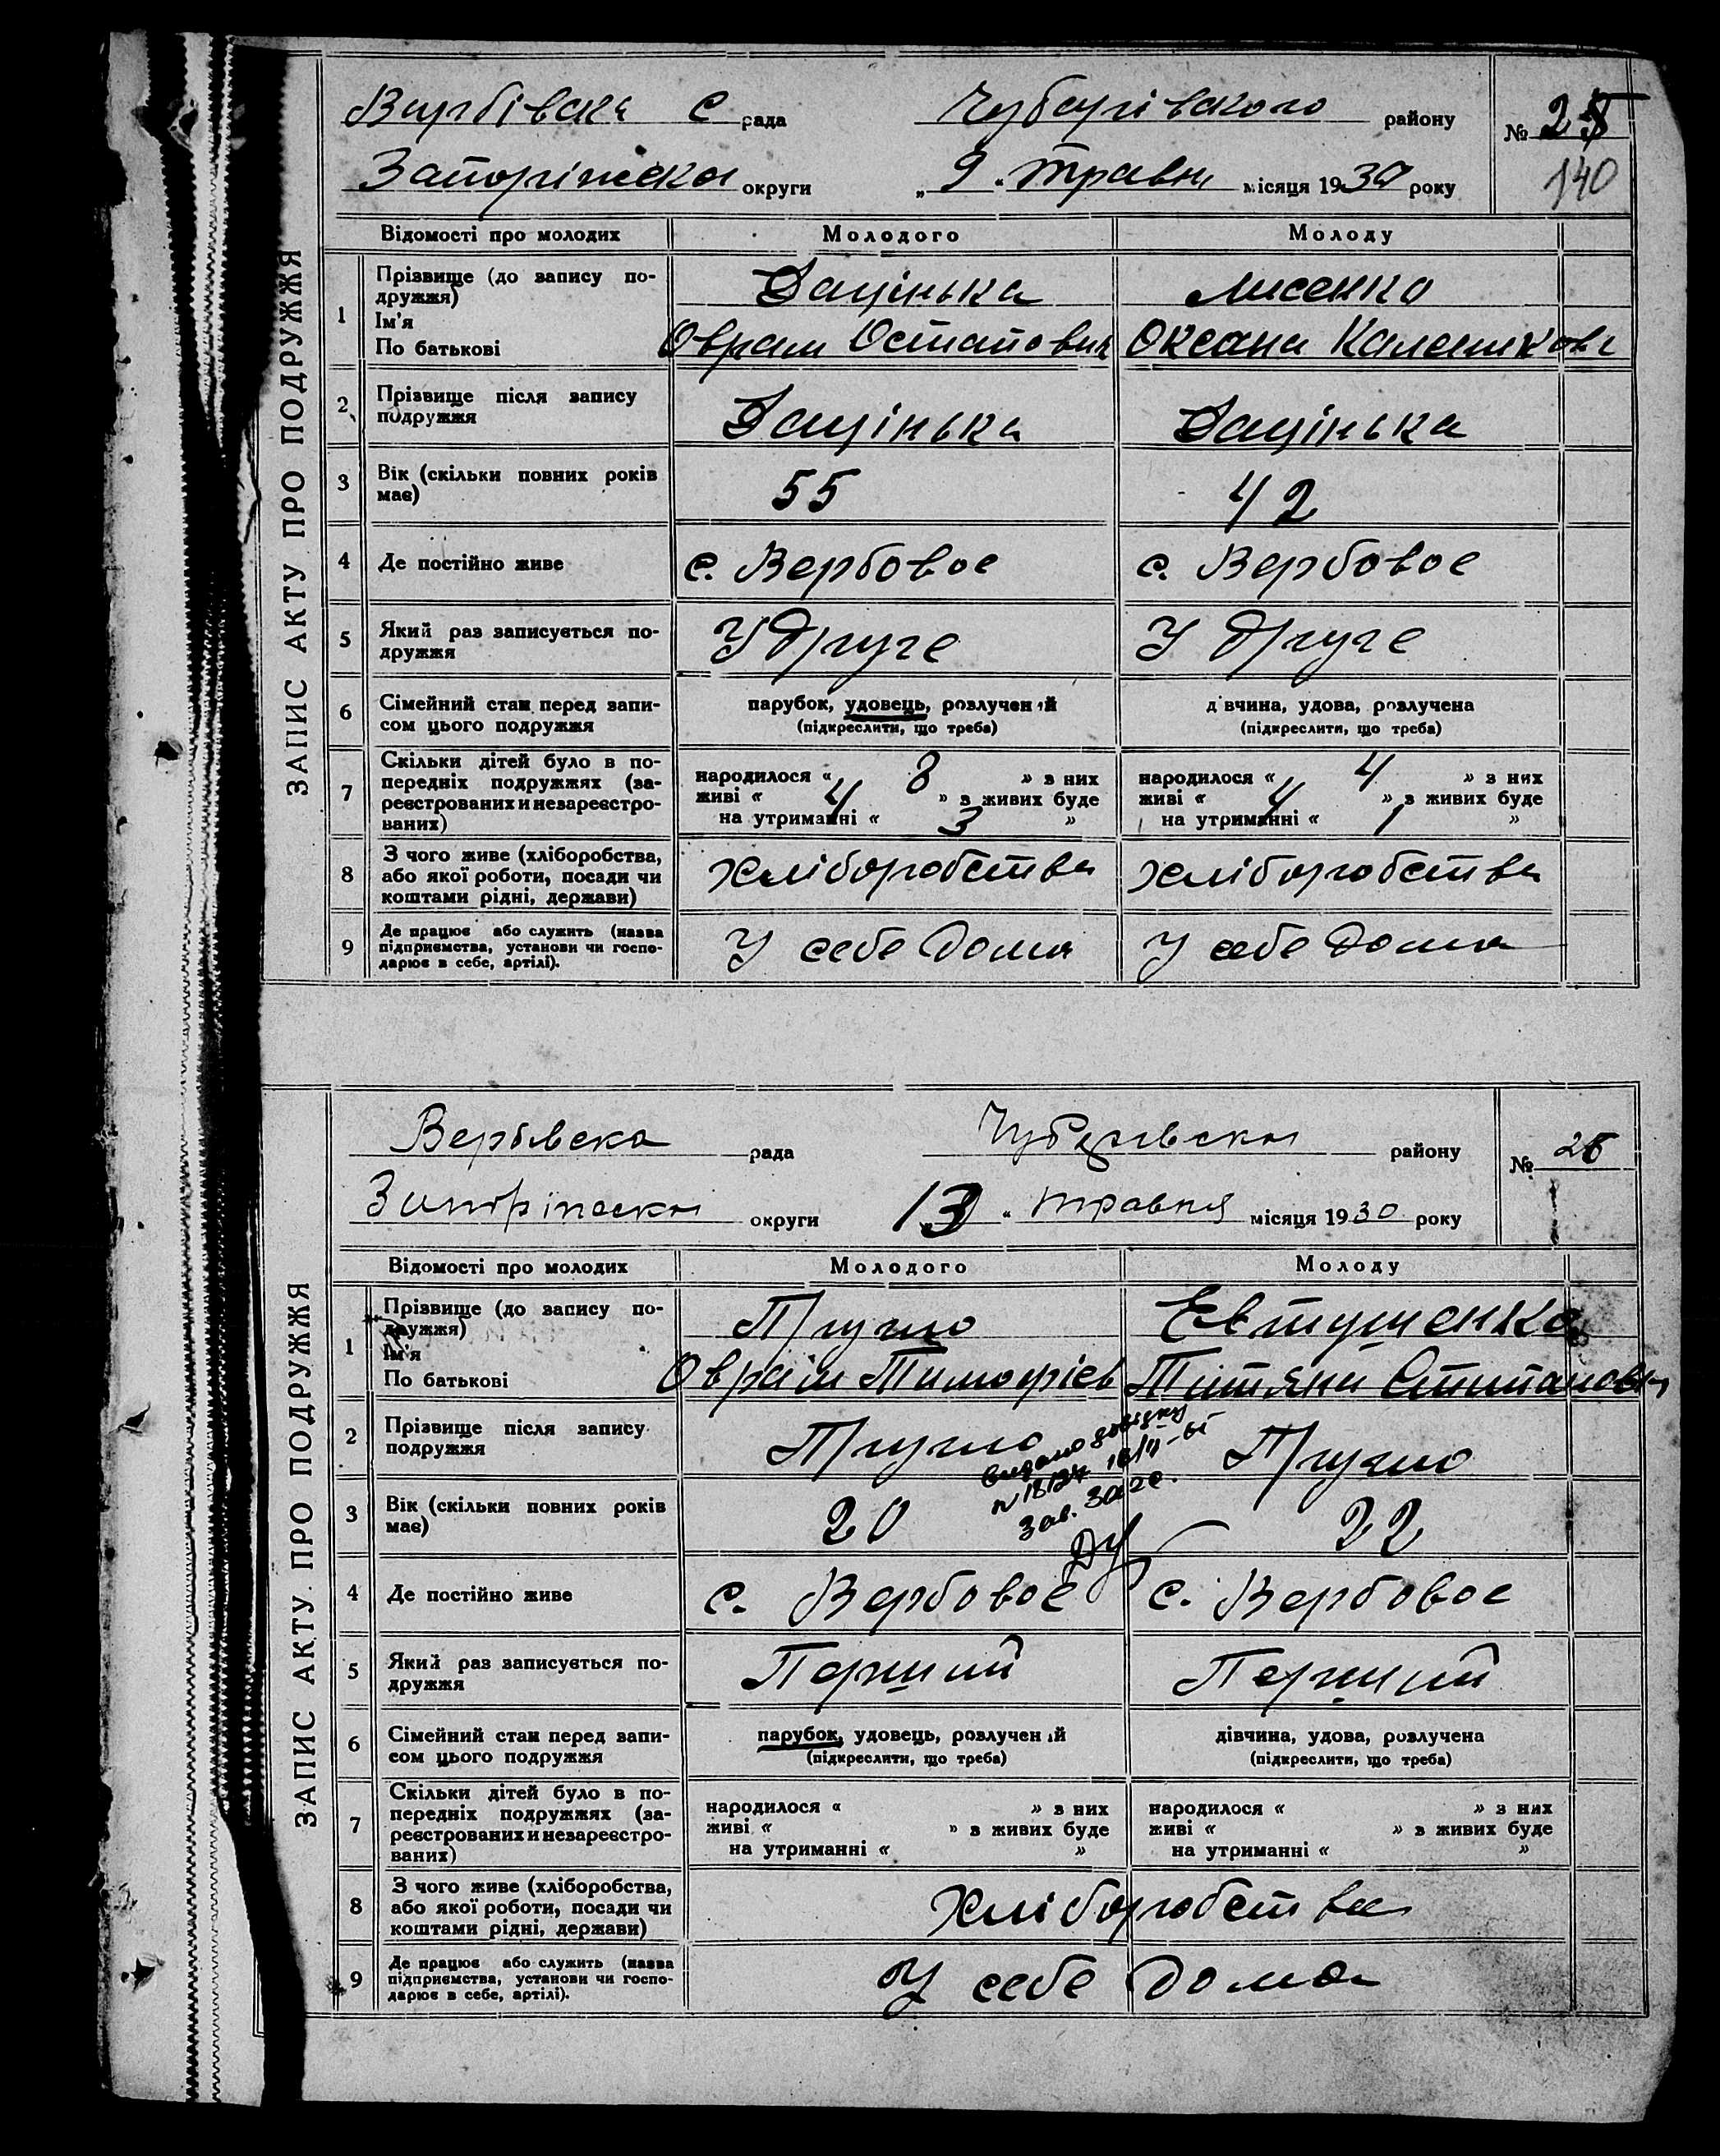 ЗАПИС АКТУ ПРО ПОДРУЖЖЯ
Вирбівска С рада Чубарівского району № 25
Запоріжска округи „9" травня місяця 1930 року 140
Відомості про молодих Молодого Молоду
1 Прізвище (до запису подружжя) Дацінька Лисенко
Ім'я
По батькові Оврам Остапович Оксана
2 Прізвище після запису подружжя Дацінька Дацінька
3 Вік (скільки повних років має) 55 42
4 Де постійно живе с. Вербовое с. Вербовое
5 Який раз записується подружжя У друге У друге
6 Сімейний стан перед записом цього подружжя парубок, удовець, розлучений (підкреслити, що треба) дівчина, удова, розлучена (підкреслити, що треба)
7 Скільки дітей було в попередніх подружжях (зареєстрованих и незареєстрованих) народилося « 8 » з них живі « 4 » з живих буде на утриманні « 3 » народилося « 4 » з них живі « 4 » з живих буде на утриманні « 1 »
8 З чого живе (хліборобства, або якої роботи, посади чи коштами рідні, держави) Хліборобства хліборобства
9 Де працює або служить (назва підприємства, установи чи господарює в себе, артілі). У себе дома У себе дома
ЗАПИС АКТУ ПРО ПОДРУЖЖЯ
Вербівска рада району № 26
округи 13 " травня місяця 1930 року
Відомості про молодих Молодого Молоду
1 Прізвище (до запису подружжя) Евтушенко
Ім'я
По батькові Оврам Тимофієв
2 Прізвище після запису подружжя
видано довідку
Зав. Загс.
3 Вік (скільки повних років має) 20 22
4 Де постійно живе с. Вербовое с. Вербовое
5 Який раз записується подружжя Перший Перший
6 Сімейний стан перед записом цього подружжя парубок, удовець, розлучений (підкреслити, що треба) дівчина, удова, розлучена (підкреслити, що треба)
7 Скільки дітей було в попередніх подружжях (зареєстрованих и незареєстрованих) народилося « » з них живі « » з живих буде на утриманні « » народилося « » з них живі « » з живих буде на утриманні « »
8 З чого живе (хліборобства, або якої роботи, посади чи коштами рідні, держави) Хліборобства
9 Де працює або служить (назва підприємства, установи чи господарює в себе, артілі). У себе дома